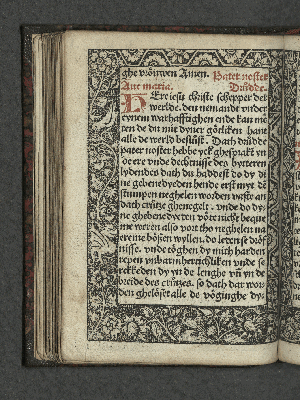 ghe vröuwen Amen. Pater noster
Aue maria. Drüdde.
HEre iesu christe schepper der
werlde. den nemandt vnder
eynem warhafftighen ende kan me
ten de du mit dyner götliken hant
alle de werld beslüst. Dath drüdde
pater noster hebbe yck ghespraken yn
de ere vnde dechtnisse des bytteren
lydendes dath du haddest do dy di
ne gebenedyeden hende erst myt de
stumpen neghelen worden vaste an
dath crütze ghenegelt. vnde do dy
ne ghebenedyeden vöte nicht beque
me weren also vort tho neghelen na
ereme bösen wyllen. do leten se dröf
nisse. vnde töghen dy mith harden
repen vnbarmhertichliken vnde se
rekkeden dy yn de lenghe vn yn de
breide des crützes. so dath dar wor
den ghelöset alle de vöginghe dy-